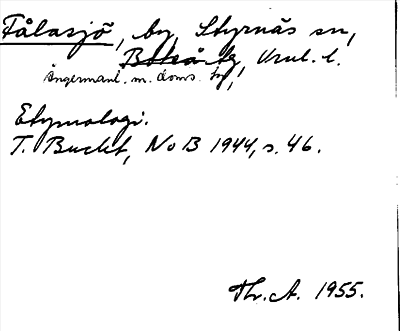 Fålasjö, by, Styrnäs sn,
Boteå tg, Vnl. l.
Ångermanl. m. doms. tg,
Etymologi.
T. Bucht, NoB 1944, s. 46.
Th. A. 1955.